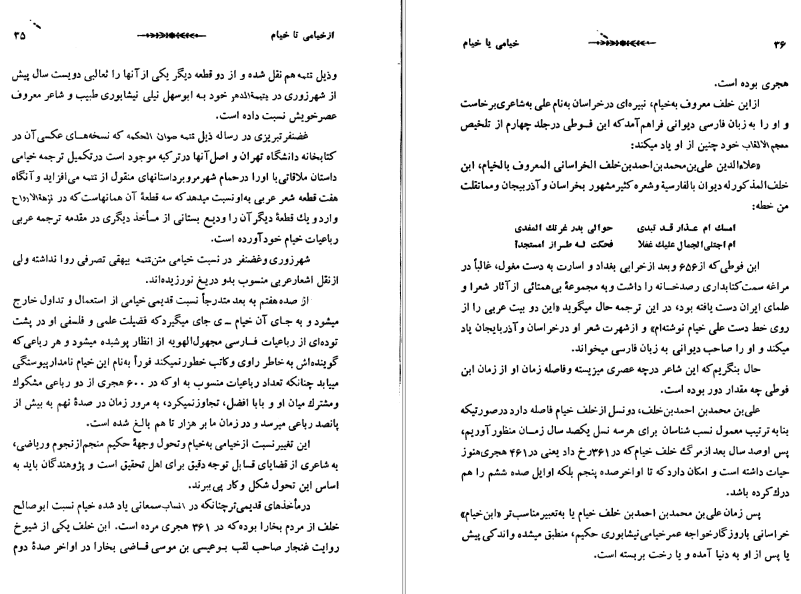 ازخیامی تا خیام
۳۵
وذیل تتمه هم نقل شده و از دو قطعه دیگر یکی از آنها را ثعالبی دویست سال پیش
از شهرزوری در یتیمةالدهر خود به ابوسهل نیلی نیشابوری طبیب و شاعر معروف
عصرخویش نسبت داده است.
غضنفرتبریزی در رساله ذیل تتمه صوان الحکمه که نسخه‌های عکسی آن در
کتابخانه دانشگاه تهران و اصل آنها درترکیه موجود است درتکمیل ترجمه خیامی
داستان ملاقاتی با او را درحمام شهرمرو برداستانهای منقول از تتمه می‌افزاید و آنگاه
هفت قطعه شعر عربی به‌او نسبت میدهد که سه قطعهٔ آن همانهاست که در نزهةالارواح
وارد و یك قطعهٔ دیگر آن را ودیع بستانی از مـأخذ دیگری در مقدمه ترجمه عربی
رباعیات خیام خودآورده است.
شهرزوری وغضنفر در نسبت خیامی متن تتمه بیهقی تصرفی روا نداشته ولی
از نقل اشعارعربی منسوب بدو دریغ نورزیده‌اند.
از صده هفتم به بعد متدرجاً نسبت قدیمی خیامی از استعمال و تداول خارج
میشود و به جـای آن خیام ــ ی جای میگیرد که فضیلت علمی و فلسفی او در پشت
توده‌ای از رباعیات فـارسی مجهول‌الهویه از انظار پوشیده میشود و هر رباعی که
گوینده‌اش به خاطر راوی وکاتب خطور نمیکند فوراً به‌نام این خیام نامدار پیوستگی
میبابد چنانکه تعداد رباعیات منسوب به او که در ۶۰۰ هجری از دو رباعی مشکوك
ومشترك میان او و بابا افضل، تجاوز نمیکرد، به مرور زمان در صدهٔ نهم به بیش از
پانصد رباعی میرسد و در زمان ما بر هزار تا هم بالغ شده است.
این تغییر نسبت ازخیامی به‌خیام وتحول وجههٔ حکیم منجم از نجوم وریاضی،
به شاعری از قضایای قـابل توجه دقیق برای اهل تحقیق است و پژوهندگان باید به
اساس این تحول شکل و کار پی‌ببرند.
درمأخذهای قدیمی‌تر چنانکه در انساب سمعانی یاد شده خیام نسبت ابوصالح
خلف از مردم بخارا بوده که در ۳۶۱ هجری مرده است. ابن خلف یکی از شیوخ
روایت غنجار صاحب لقب بوعیسی بن موسی قـاضی بخارا در اواخر صدهٔ دوم
خیامی یا خیام
۳۶
هجری بوده است.
از این خلف معروف به‌خیام، نبیره‌ای درخراسان به‌نام علی به‌شاعری برخاست
و او را به زبان فارسی دیوانی فراهم آمد که ابن فوطی درجلد چهارم از تلخیص
معجم‌الالقاب خود چنین از او یاد میکند:
«علاءالدین علی بن محمدبن احمدبن خلف الخراسانی المعروف بالخیام، ابن
خلف المذکور له دیوان بالفارسیة وشعره کثیر مشهور بخراسان و آذربیجان ومما نقلت
من خطه:
امسك ام عـذار قـد تبدی حوالی بدر غرتك المفدی
ام اجتلی الجمال علیك غفلا فحکت لـه طـراز امستجدآ
ابن فوطی که از ۶۵۶ وبعد ازخرابی بغداد و اسارت به دست مغول، غالباً در
مراغه سمت کتابداری رصدخـانه را داشت و به مجموعهٔ بی‌همتائی از آثار شعرا و
علمای ایران دست یافته بود، در این ترجمه حال میگوید «این دو بیت عربی را از
روی خط دست علی خیام نوشته‌ام» و از شهرت شعر او درخراسان و آذربایجان یاد
میکند و او را صاحب دیوانی به زبان فارسی میخواند.
حال بنگریم که این شاعر درچه عصری میزیسته وفاصله زمان او از زمان ابن
فوطی چه مقدار دور بوده است.
علی بن محمد بن احمد بن خلف، دونسل ازخلف خیام فاصله دارد درصورتیکه
بنا به ترتیب معمول نسب شناسان برای هرسه نسل یکصد سال زمـان منظور آوریم،
پس اوصد سال بعد از مرگ خلف خیام که در ۳۶۱رخ داد یعنی در ۴۶۱ هجری هنوز
حیات داشته است و امکان دارد که تا اواخرصده پنجم بلکه اوایل صده ششم را هم
درك کرده باشد.
پس زمان علی بن محمد بن احمد بن خلف خیام یا به‌تعبیر مناسب‌تر «ابن خیام»
خراسانی با روزگارخواجه عمرخیامی نیشابوری حکیم، منطبق میشده واندکی پیش
یا پس از او به دنیا آمده و یا رخت بربسته است.